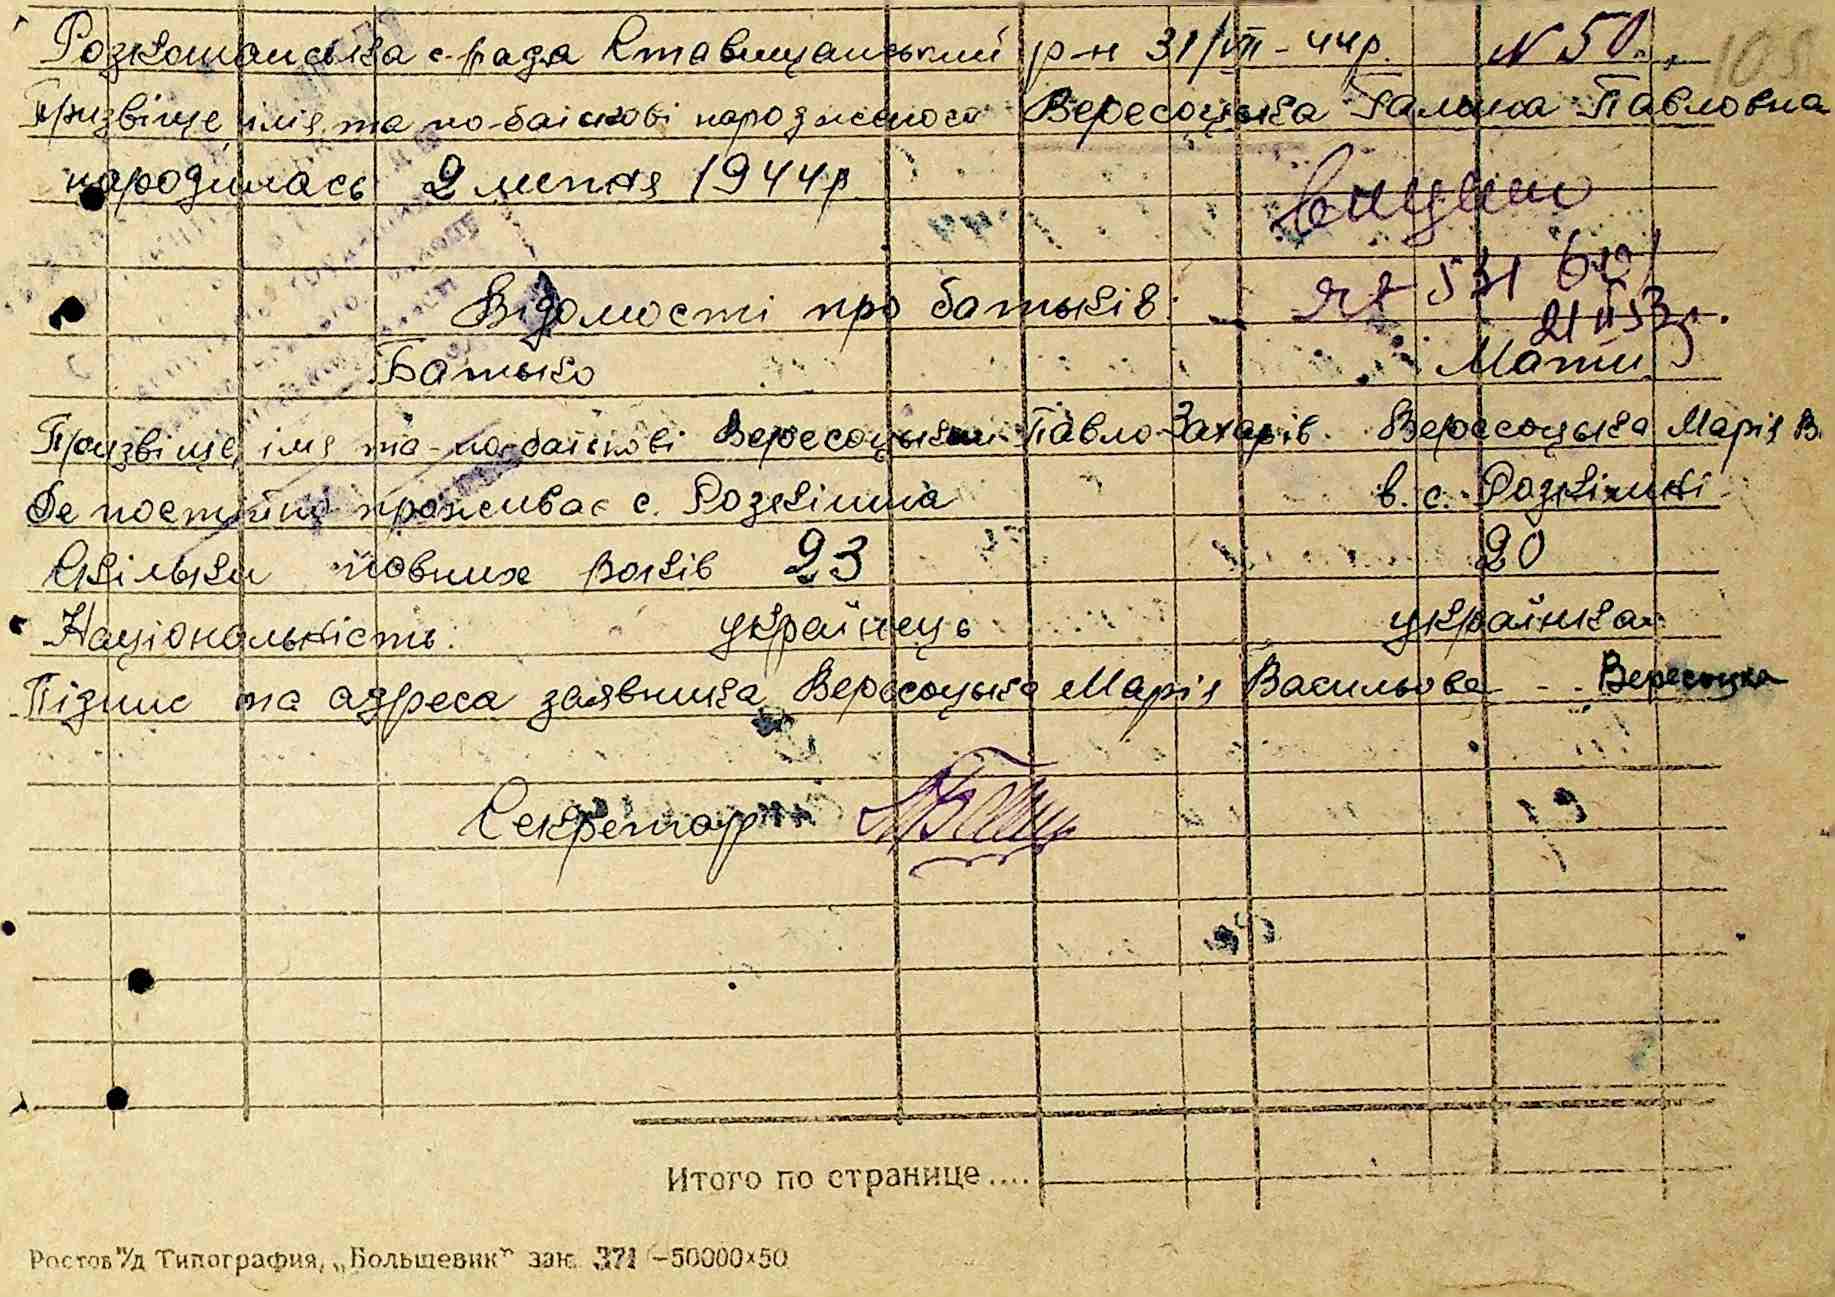 Розкошанська с-рада Ставищанський р-н 31/VII-44р. N 50
105
Призвіще імя та по-баткові народженої Вересоцька Галина Павловна
народилась 2 липня 1944р
Відомості про батьків.
ЯЄ 531
21 II 53р.
Батько Мати
Призвіще, імя та-по-баткові Вересоцький Павло Захарів. Вересоцька Марія В.
Де постійно проживає с. Розкішна в. с. Розкішні
Скільки повних років 23 20
Національність. українець українка
Підпис та адреса заявника Вересоцька Марія Васильова - . Вересоцка
Секретар
Итого по странице....
Ростов н/д Типография, „Большевик" зак. 371 -50000×50